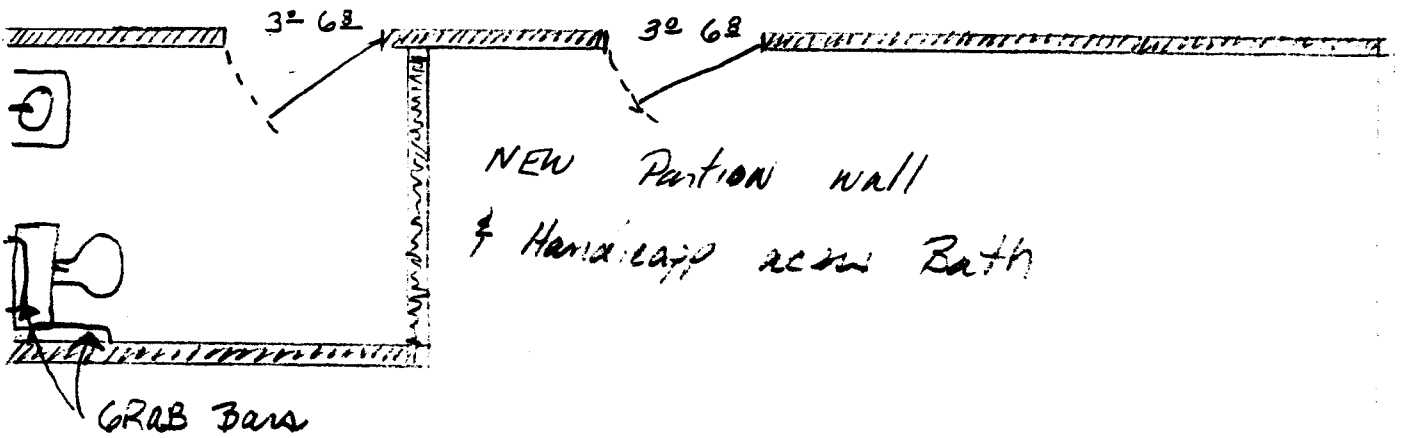 3⁰ 6⁸ 3⁰ 6⁸
NEW Partion wall
& Handicapp acess Bath
GRAB Bars